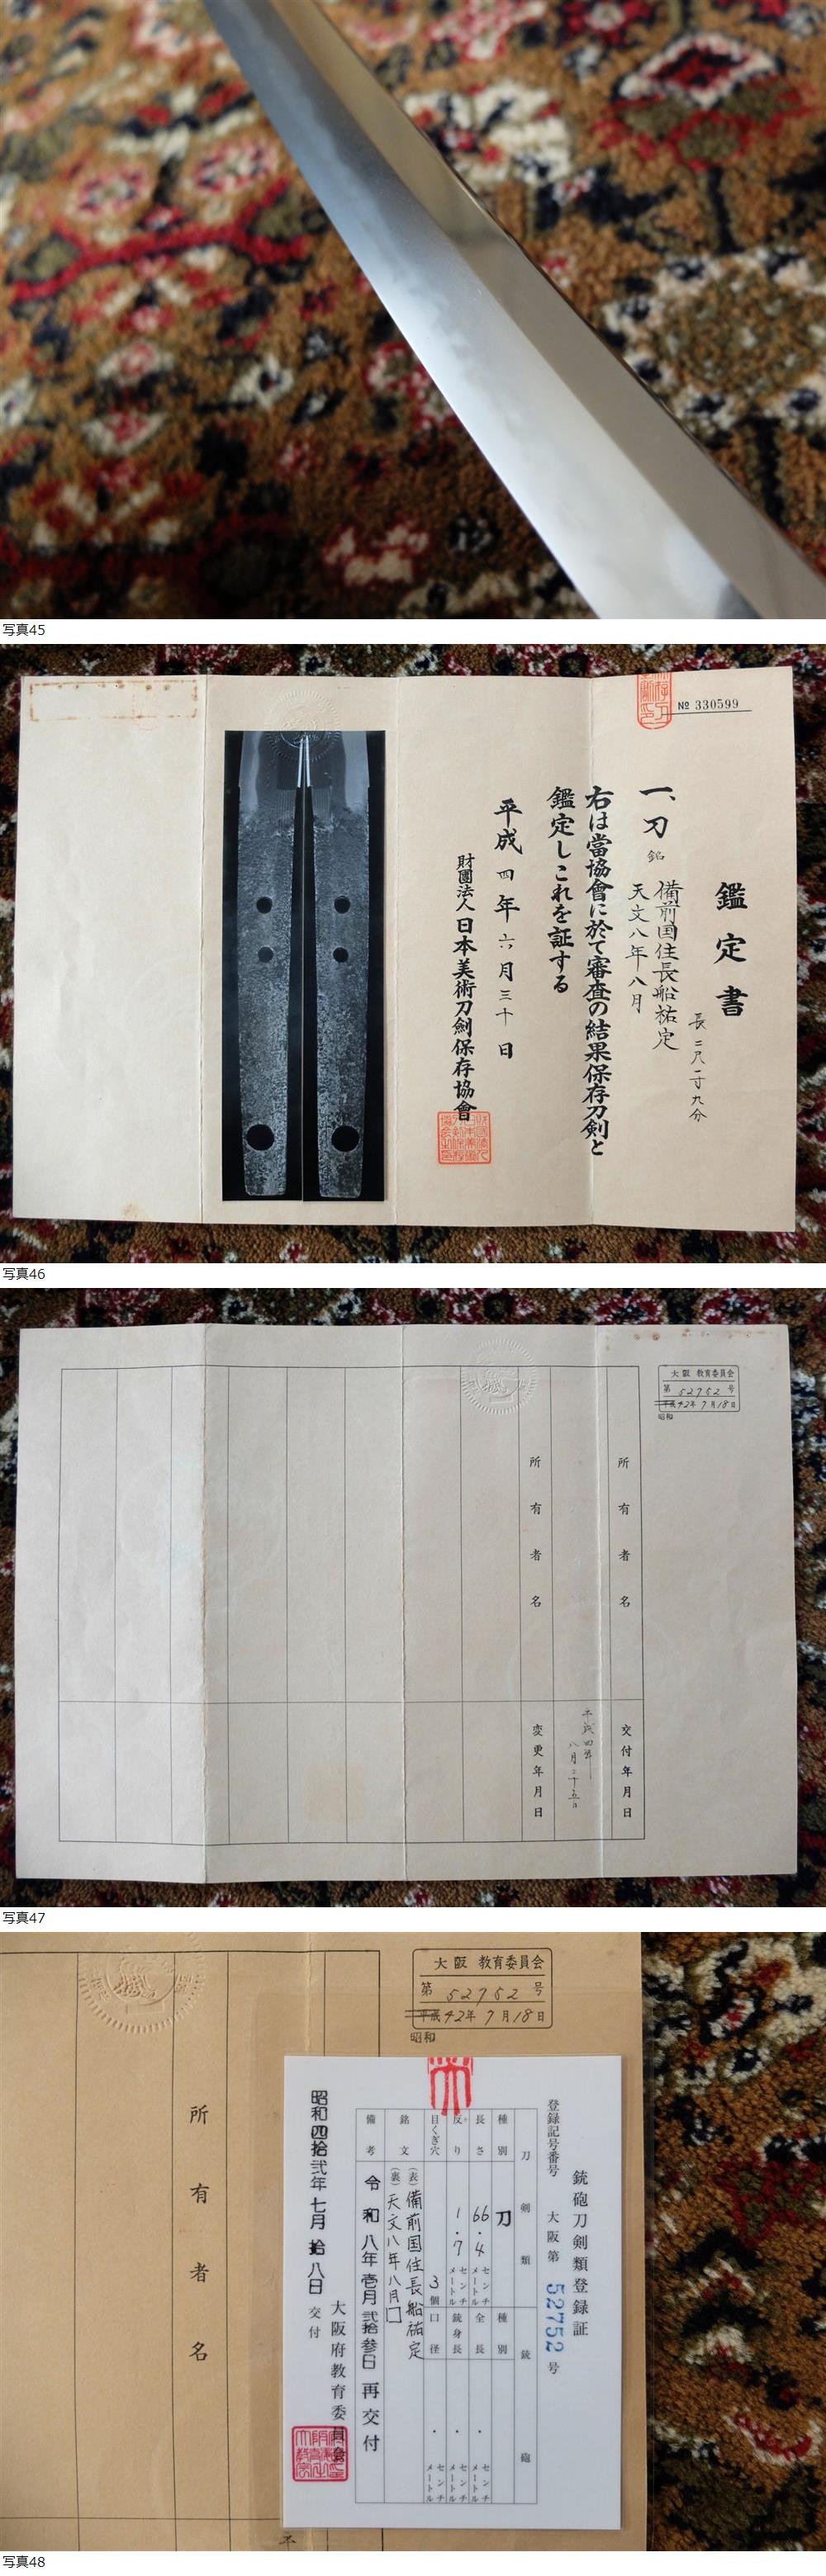 写真45
№ 330599
鑑定書
長二尺一寸九分
一、刀 銘 備前国住長船祐定
天文八年八月
右は當協會に於て審査の結果保存刀剣と
鑑定しこれを証する
平成四年六月三十日
財團法人日本美術刀劍保存協會
写真46
大阪 教育委員会
第 52752 号
平成42年7月18日
昭和
所有者名
交付年月日
平成四年
八月二十五日
所有者名
変更年月日
写真47
大阪 教育委員会
第 52752 号
平成42年7月18日
昭和
所有者名
銃砲刀剣類登録証
登録記号番号 大阪第 52752 号
刀剣類 銃砲
種別 刀 種別
長さ 66.4 センチメートル 全長 . センチメートル
反り 1.7 センチメートル 銃身長 . センチメートル
目くぎ穴 3個 口径 . センチメートル
銘文 (表) 備前国住長船祐定
(裏) 天文八年八月□
備考 令和八年壱月弐拾参日再交付
大阪府教育委員会
昭和四拾弐年七月拾八日交付
写真48